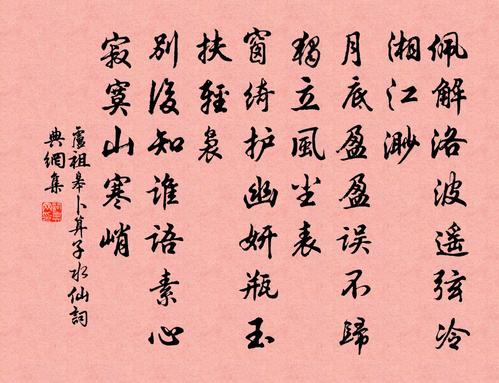 佩解洛波遥弦冷
湘江渺
月底盈盈误不歸
獨立風尘表
窗綺护幽妍瓶玉
扶輕袅
别後知谁语素心
寂寞山寒峭
盧祖皋卜算子水仙詞
典網集